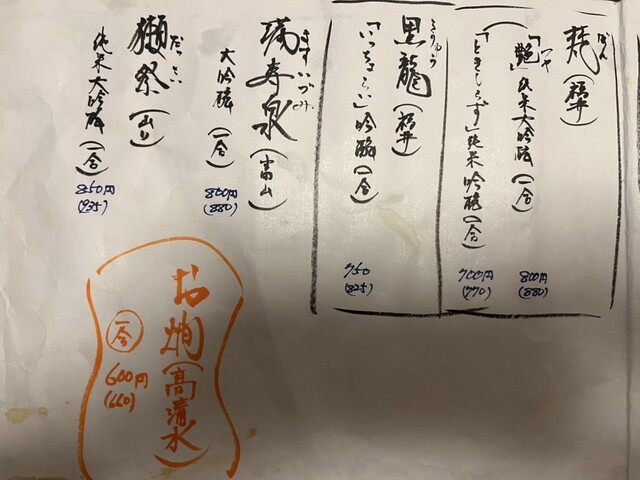 梵(福井)
ぼん
「艶」純米大吟醸(一合)
つや
800円
(880)
「ときしらず」純米吟醸(一合)
700円
(770)
黒龍(福井)
こくりゅう
「いっちょらい」吟醸(一合)
750
(825)
満寿泉(富山)
ますいづみ
大吟醸(一合)
800円
(880)
獺祭(山口)
だっさい
純米大吟醸(一合)
850円
(935)
お燗(高清水)
一合
600円
(660)